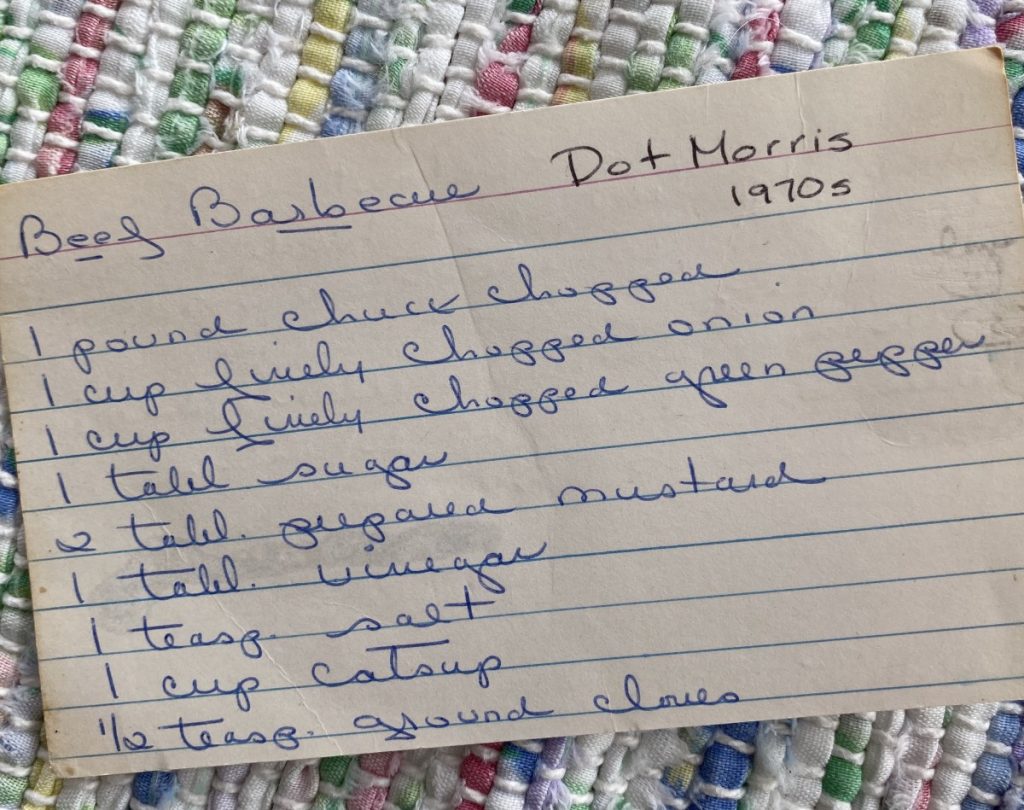 Beef Barbecue Dot Morris
1970s
1 pound chuck chopped
1 cup finely chopped onion
1 cup finely chopped green pepper
1 tabl sugar
2 tabl. prepared mustard
1 tabl. vinegar
1 teasp. salt
1 cup catsup
1/2 teasp. ground cloves